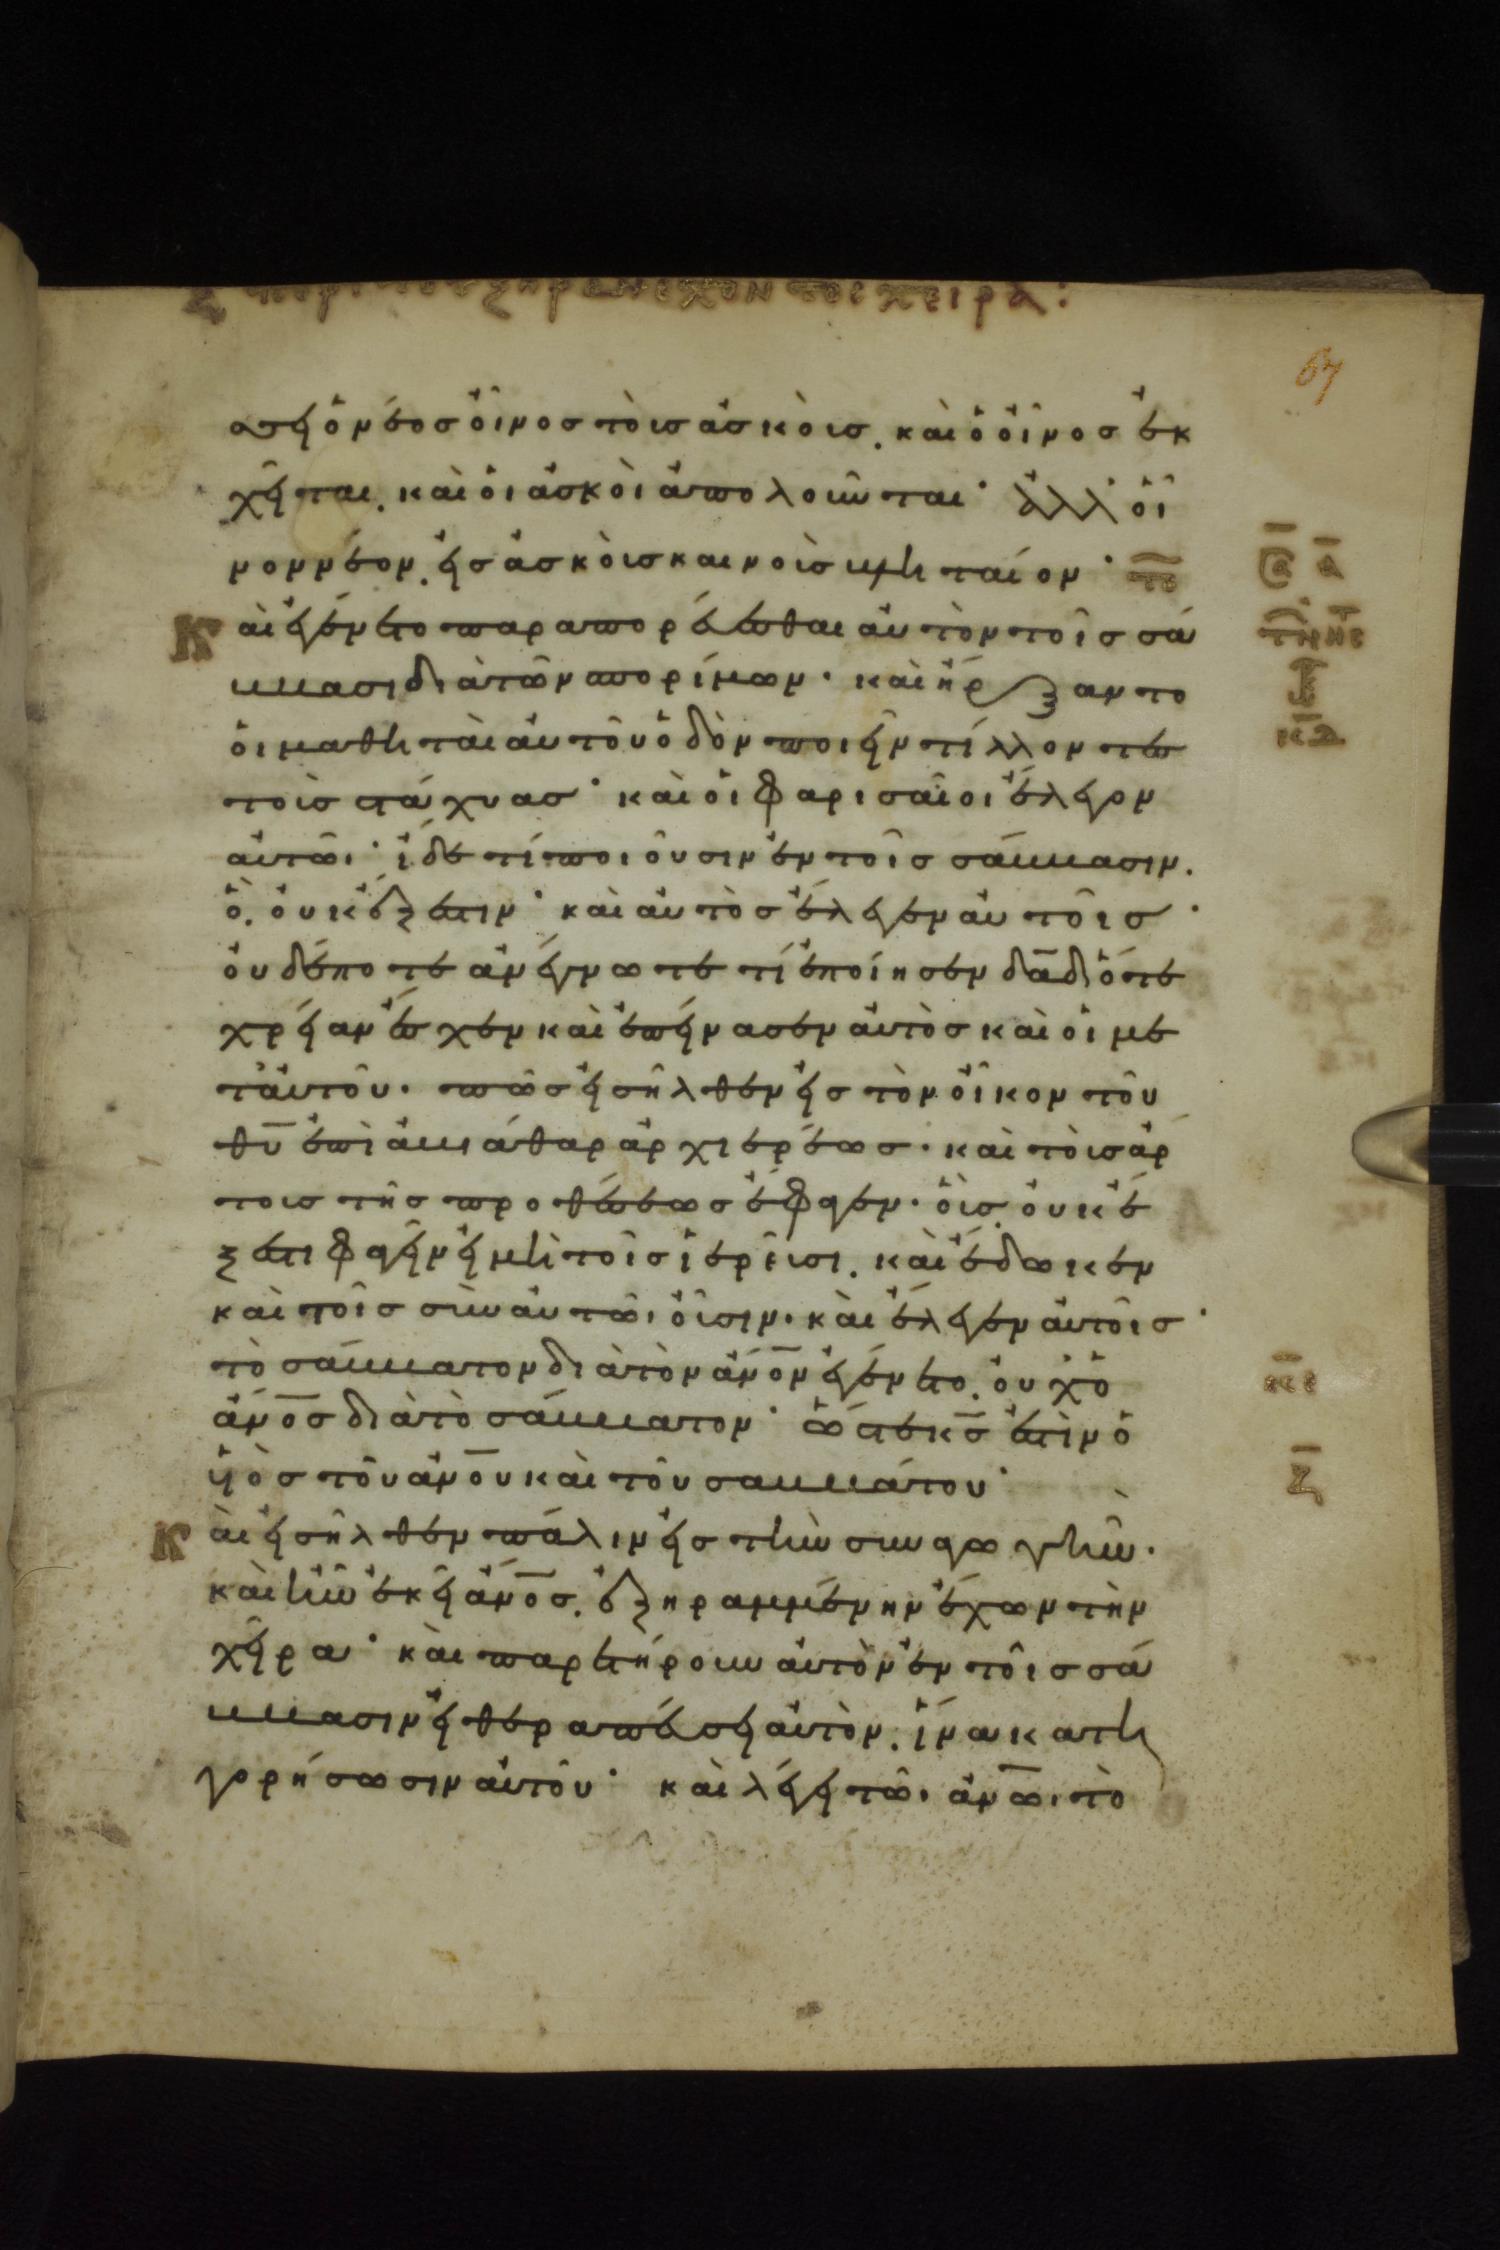 ς περὶ τοῦ ξηρὰν ἔχοντος χεῖρα:
67
ασει ὁ νέος οἶνος τοὺς ἀσκοὺς. καὶ ὁ οἶνος ἐκ
χεῖται. καὶ οἱ ἀσκοὶ ἀπολοῦνται· ἀλλ' οἶ
νον νέον. εἰς ἀσκοὺς καινοὺς βλητέον· τε
Καὶ ἐγένετο παραπορεύεσθαι αὐτὸν τοῖς σά
ββασι διὰ τῶν σπορίμων· καὶ ἤρξαντο
οἱ μαθηταὶ αὐτοῦ ὁδὸν ποιεῖν τίλλοντες
τοὺς στάχυας· καὶ οἱ φαρισαῖοι ἔλεγον
αὐτῶι· ἴδε τί ποιοῦσιν ἐν τοῖς σάββασιν.
ὃ. οὐκ ἔξεστιν· καὶ αὐτὸς ἔλεγεν αὐτοῖς·
οὐδέποτε ἀνέγνωτε τί ἐποίησεν δα̅δ ὅτε
χρείαν ἔσχεν καὶ ἐπείνασεν αὐτὸς καὶ οἱ με
τ' αὐτοῦ· πῶς εἰσῆλθεν εἰς τὸν οἶκον τοῦ
θυ̅ ἐπὶ ἀβιάθαρ ἀρχιερέως· καὶ τοὺς ἄρ
τους τῆς προθέσεως ἔφαγεν· οὓς. οὐκ ἔ
ξεστι φαγεῖν εἰ μὴ τοῖς ἱερεῦσι. καὶ ἔδωκεν
καὶ τοῖς σὺν αὐτῶι οὖσιν· καὶ ἔλεγεν αὐτοῖς·
τὸ σάββατον διὰ τὸν ἄνο̅ν ἐγένετο. οὐχ ὁ
ἄνο̅ς διὰ τὸ σάββατον· ὥστε κς̅ ἐστὶν ὁ
υἱὸς τοῦ ἀνο̅υ καὶ τοῦ σαββάτου·
Καὶ εἰσῆλθεν πάλιν εἰς τὴν συναγωγήν·
καὶ ἦν ἐκεῖ ἄνο̅ς. ἐξηραμμένην ἔχων τὴν
χεῖρα· καὶ παρετήρουν αὐτὸν ἐν τοῖς σά
ββασιν εἰ θεραπεύσει αὐτὸν. ἵνα κατη
γορήσωσιν αὐτοῦ· καὶ λέγει τῶι ἀνω̅ι τὸ
κδ
κε
ς